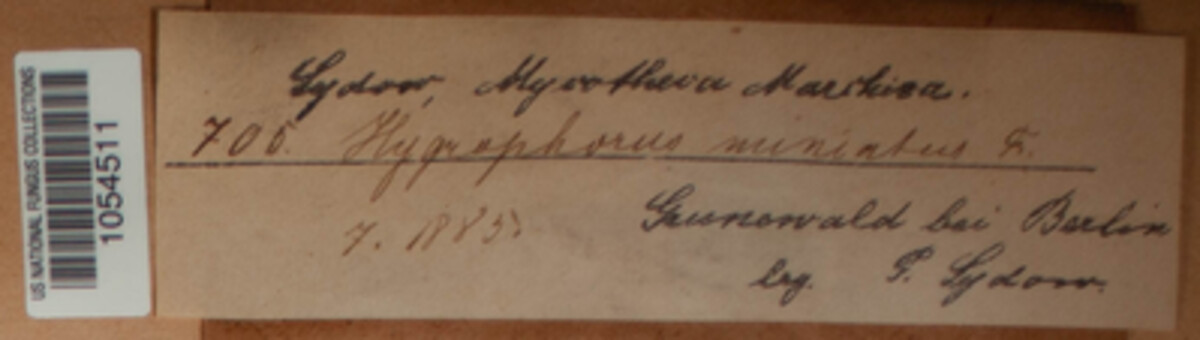 US NATIONAL FUNGUS COLLECTIONS
1054511
Sydow, Mycotheca Marchica.
705. Hygrophorus miniatus F.
7. 1883
Grunewald bei Berlin
leg. P. Sydow.